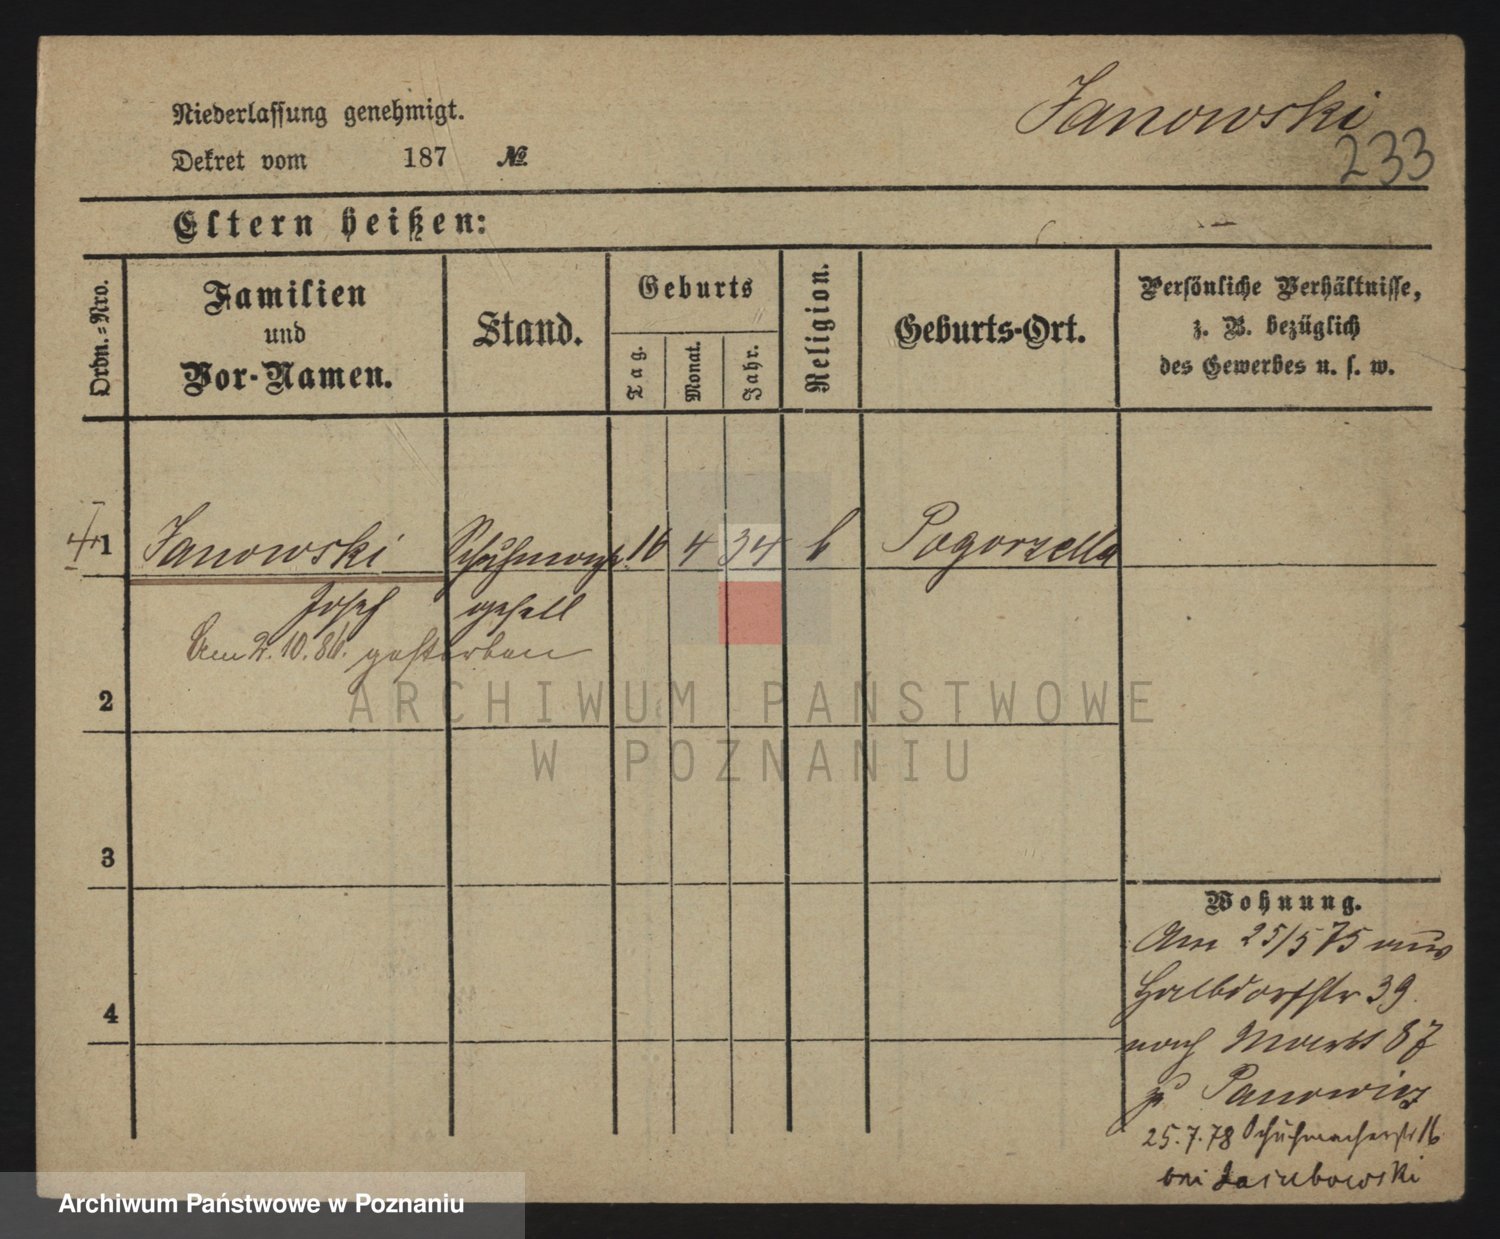 Niederlassung genehmigt.
Janowski
Dekret vom 187 №
233
Eltern heißen:
Ordn.-Nro.
Familien
und
Vor-Namen.
Stand.
Geburts
Tag.
Monat.
Jahr.
Religion.
Geburts-Ort.
Persönliche Verhältnisse,
z. B. bezüglich
des Gewerbes u. s. w.
1 Janowski Schuhmach. 16 4 34 k Pogorzella
Josef gesell
Am 2.10.86. gestorben
2
3
4
Wohnung.
Am 25/5 75 aus
Halbdorfstr 39.
nach Markt 87
zu Panowicz
25.7.78 Schuhmacherstr 16
bei Jakubowski
ARCHIWUM PAŃSTWOWE
W POZNANIU
Archiwum Państwowe w Poznaniu